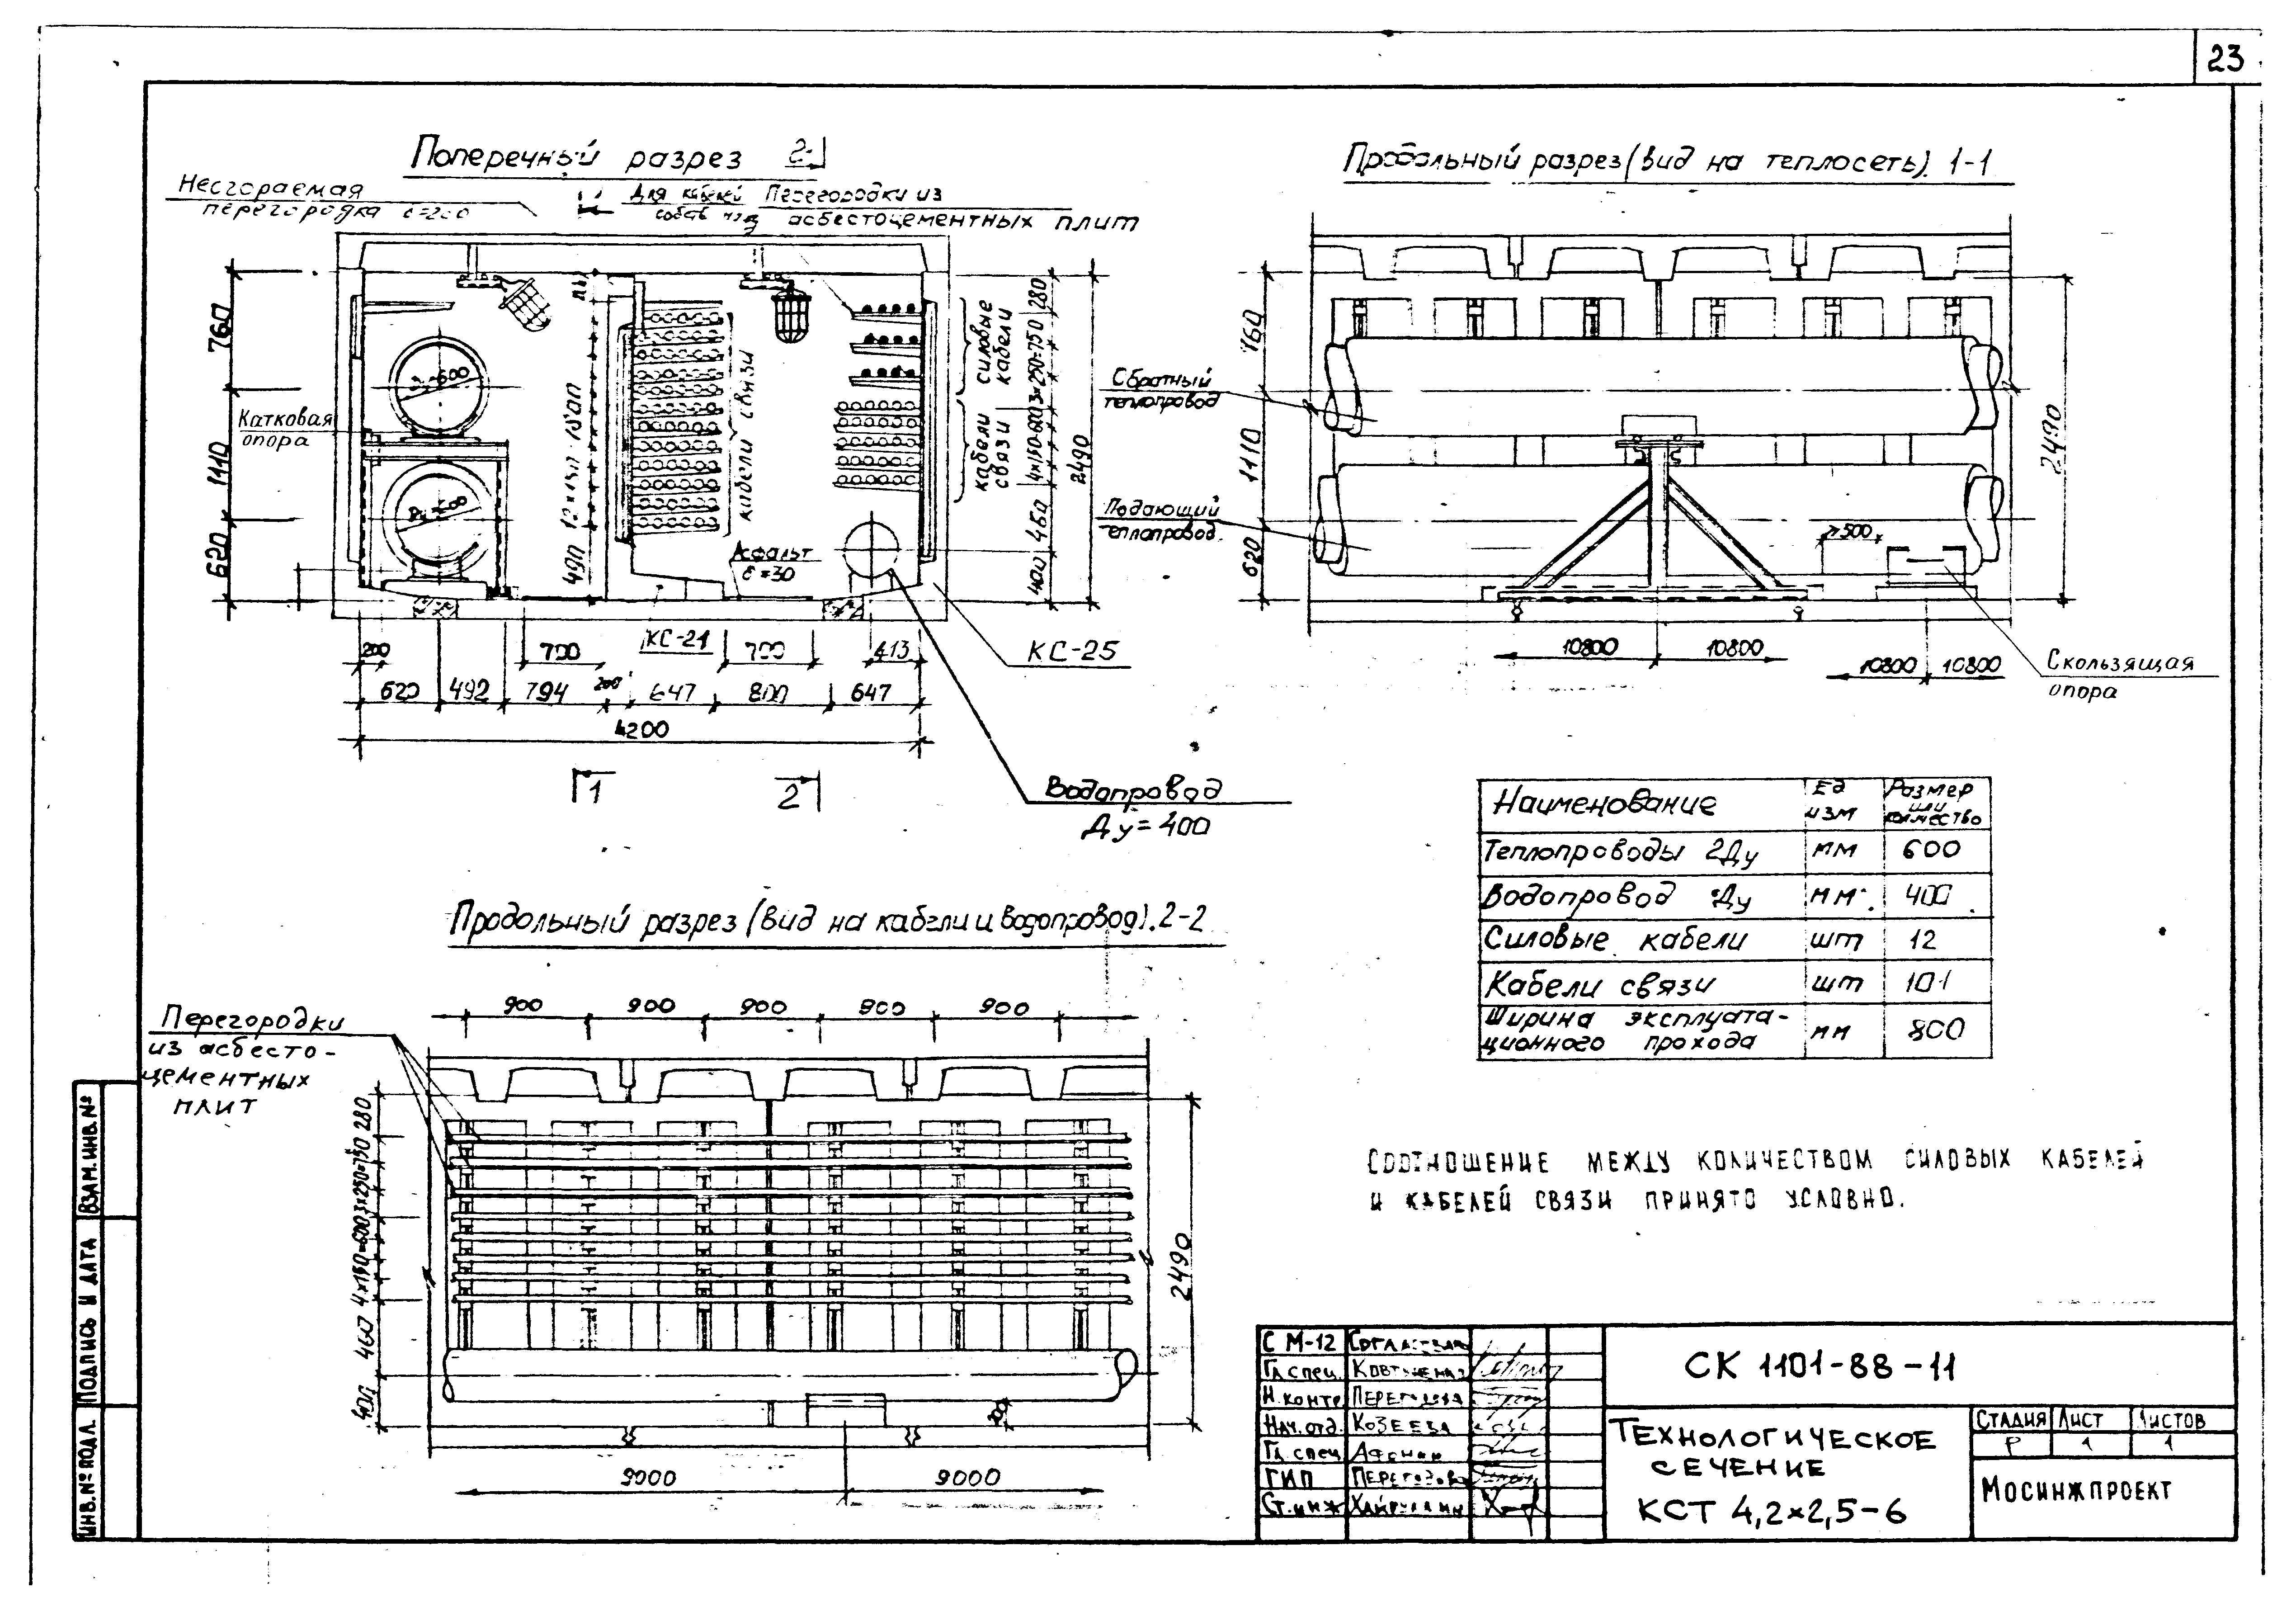 23
Поперечный разрез
Несгораемая
перегородка
Для кабелей
Перегородки из
асбестоцементных плит
760
1110
620
Катковая
опора
490
кабели связи
Асфальт
δ=30
силовые
кабели
кабели
связи
280
3×250=750
4×150=600
460
400
2490
200
700
КС-21
700
413
КС-25
620
492
794
200
647
800
647
4200
1
2
Водопровод
Ду=400
Продольный разрез (вид на теплосеть). 1-1
760
1110
620
Обратный
теплопровод
Подающий
2490
500
10800
10800
10800
10800
Скользящая
опора
Наименование
Ед
изм
Размер
или
количество
Теплопроводы 2Ду
мм
600
Водопровод Ду
мм
400
Силовые кабели
шт
12
Кабели связи
шт
101
Ширина эксплуата-
ционного прохода
мм
800
Продольный разрез (вид на кабели и водопровод). 2-2
Перегородки
из асбесто-
цементных
плит
900
900
900
900
900
280
3×250=750
4×150=600
460
400
2490
200
9000
9000
Соотношение между количеством силовых кабелей
и кабелей связи принято условно.
СМ-12
Гл. спец.
Н. контр
Нач. отд.
Козеева
Гл. спец
ГИП
Ст. инж
СК 1101-88-11
Технологическое
сечение
КСТ 4,2×2,5-6
Стадия
Лист
Листов
Р
1
1
Мосинжпроект
Взам. инв. №
Подпись и дата
Инв. № подл.